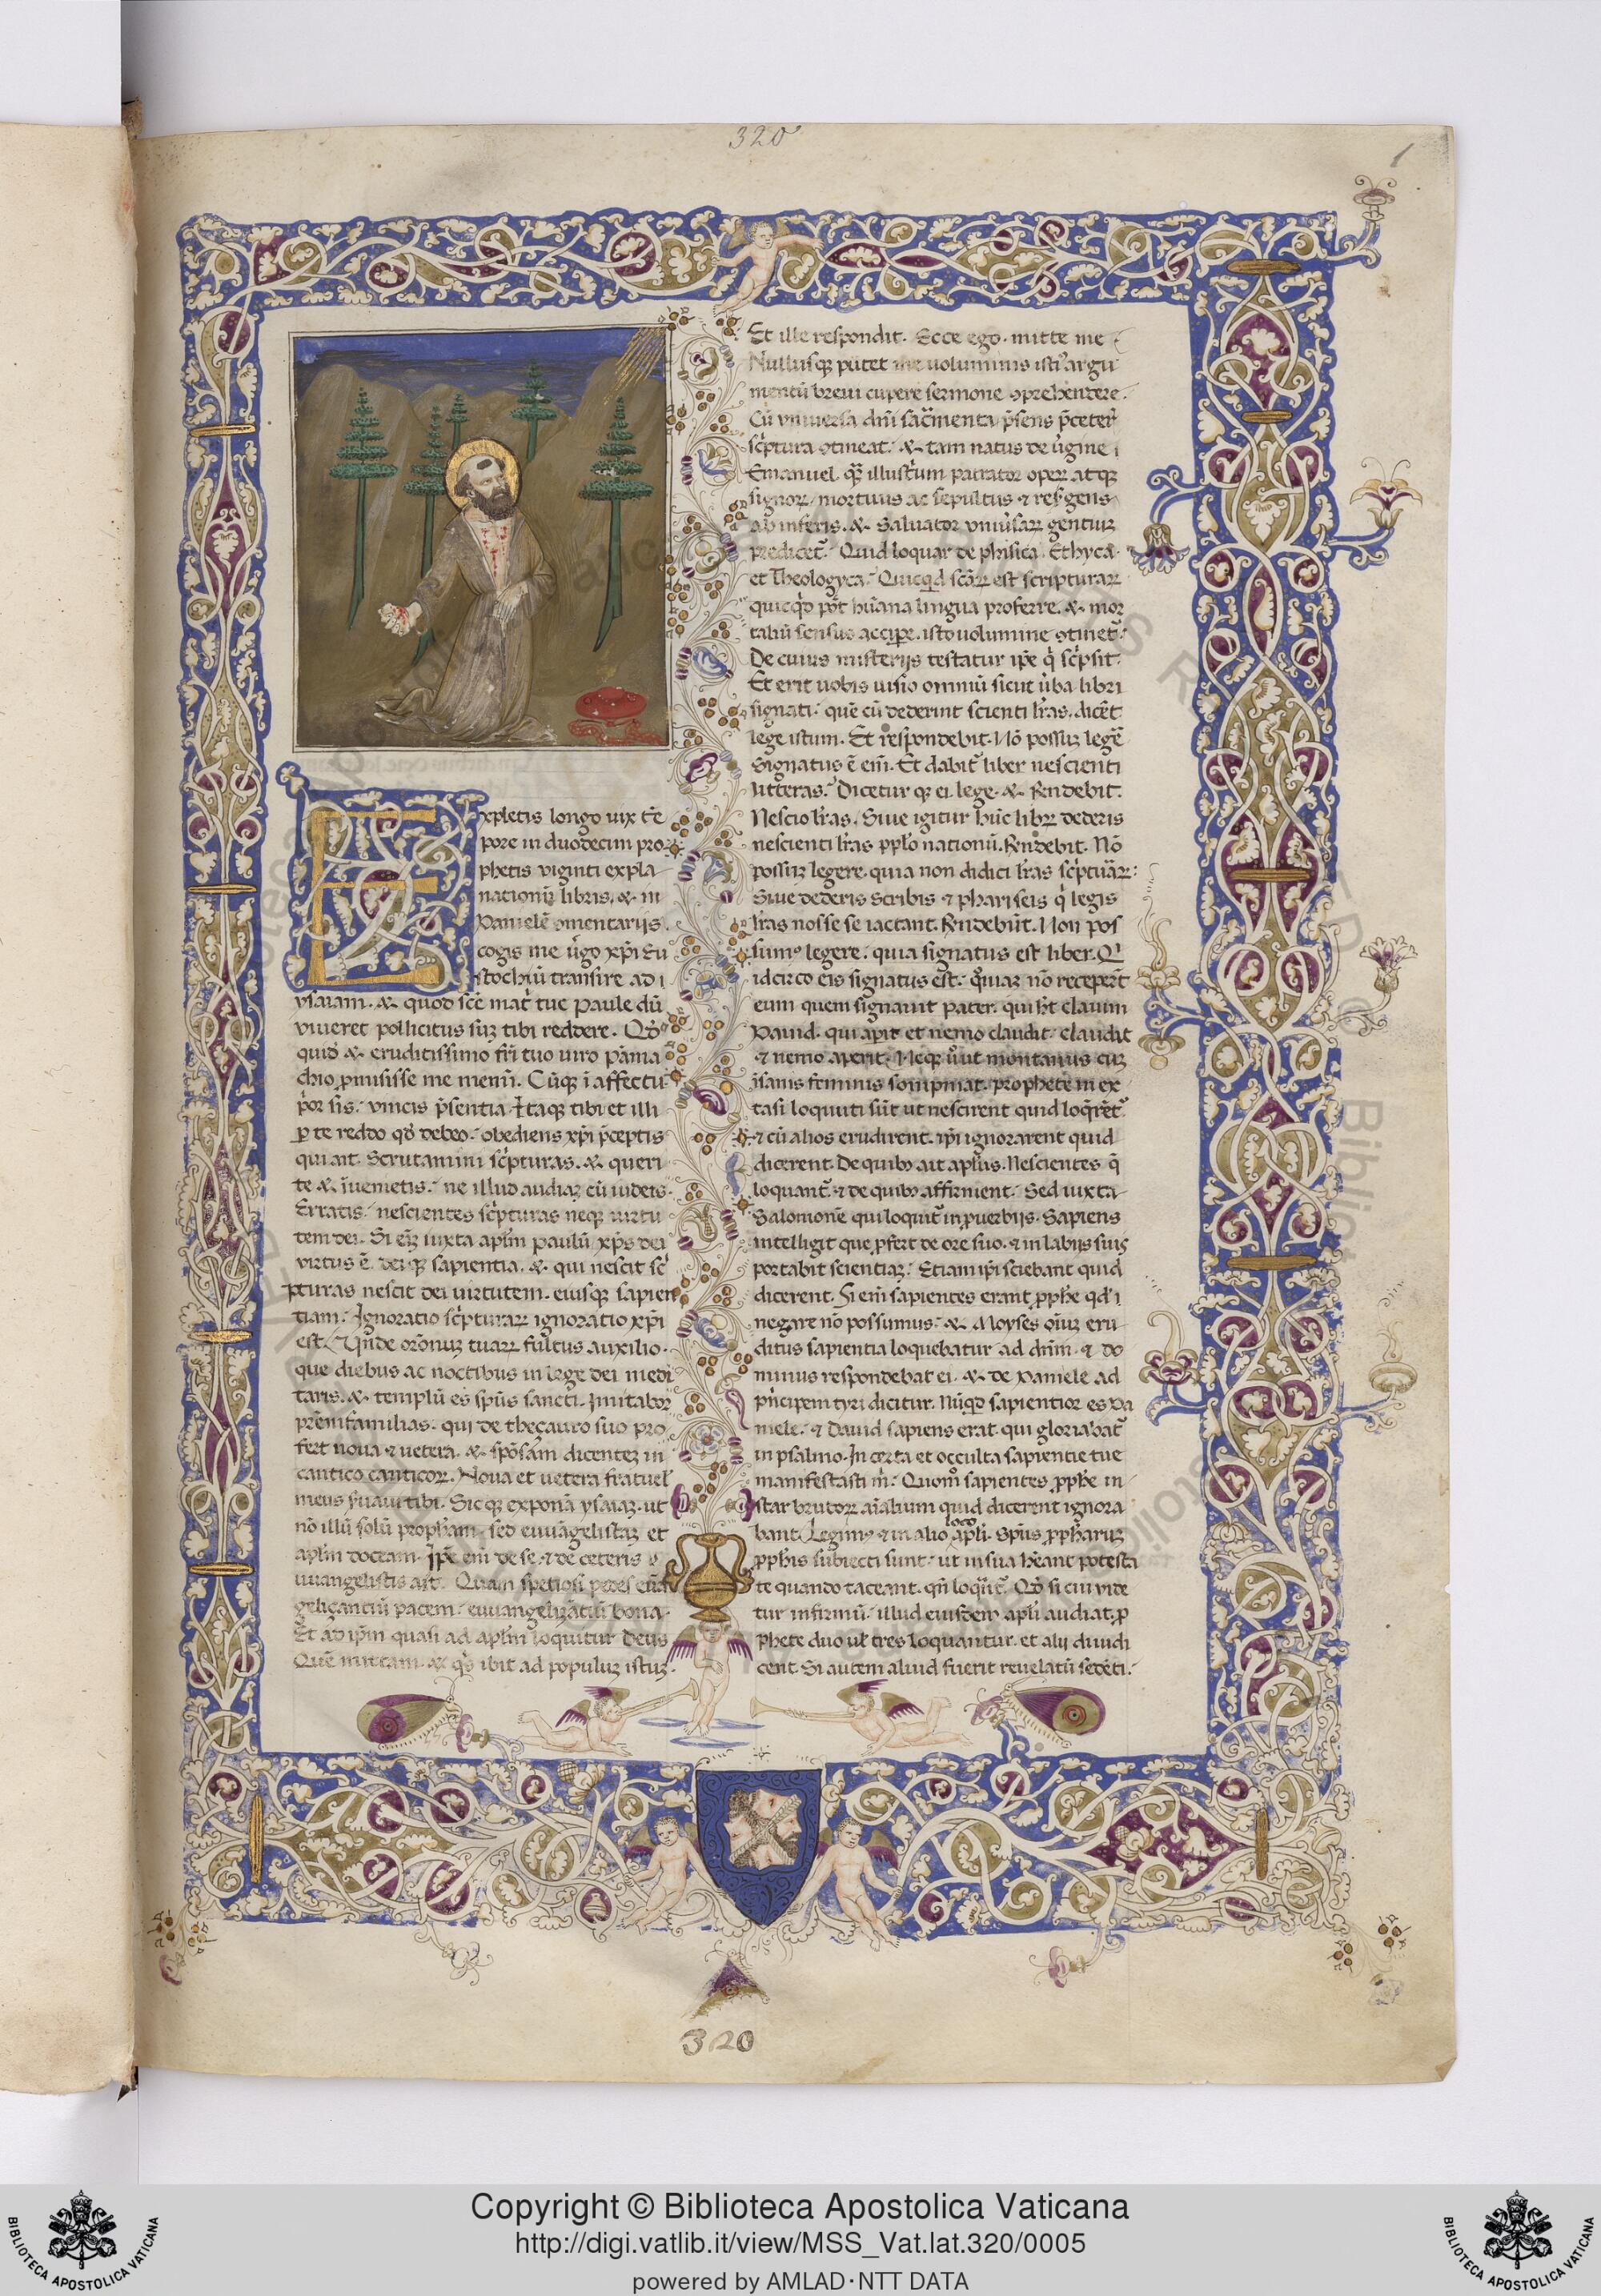 320
1
Expletis longo uix tẽ
pore in duodecim pro
phetis viginti expla
nationũ libris. & in
Danielẽ ꝯmentarijs.
cogis me ũgo xp̃i Eu
stochiũ transire ad i
ysaiam. & quod sc̃e mat̃ tue Paule dũ
viueret pollicitus suʒ tibi reddere. Qđ
quid & eruditissimo fr̃i tuo uiro Pãma
chio ꝓmisisse me memĩ. Cũqꝫ ĩ affectu
p̃or sis. vincis p̃sentia Itaqꝫ tibi et illi
ꝑ te reddo qđ debeo. obediens xp̃i p̃ceptis
qui ait. Scrutamini sc̃pturas. & queri
te & ĩuenietis. ne illud audiaʒ cũ iudeis.
Erratis. nescientes sc̃pturas neqꝫ uirtu
tem dei. Si eĩʒ iuxta apl̃m paulũ xp̃s dei
virtus ẽ. dei qꝫ sapientia. & qui nescit sc̃
pturas nescit dei uirtutem. eiusqꝫ sapien
tiam. Ignoratio sc̃pturaꝝ ignoratio xp̃i
est. Vñde or̃onuʒ tuaꝝ fultus auxilio.
que diebus ac noctibus in lege dei medi
taris. & templũ es sp̃us sancti. Imitabor
pr̃emfamilias. qui de theçauro suo pro
fert noua & uetera. & spõsam dicenteʒ in
cantico canticoꝝ. Noua et uetera fratuel̃
meus seruaui tibi. Sic qꝫ exponã ysaiaʒ. ut
nõ illũ solũ proph̃am. sed euuãgelistaʒ et
apl̃m doceam. Ip̃e eni de se. & de ceteris
uuangelistis ait. Quam spetiosi pedes euã
geliçantiũ pacem. euuangelizãtiũ bona.
Et ad ip̃m quasi ad apl̃m loquitur Deus
Quẽ mittam. & q̃s ibit ad populuʒ istuʒ.
Et ille respondit. Ecce ego. mitte me
Nullusqꝫ putet me uoluminis isti⁹ argu
mentũ breui cupere sermone ꝯprehendere.
Cũ vniuersa dñi sac̃menta p̃sens p̃ceteꝝ
sc̃ptura ꝯtineat. & tam natus de ũgine
Emanuel. qꝫ illust̃um patrator opeꝝ atqꝫ
signoꝝ. mortuus ac sepultus & res̃gens
ab inferis. & Saluator vniũsaꝝ gentiuʒ
predicet̃. Quid loquar de phisica. Ethyca.
et Theologyca. Quicq̃d sc̃aꝝ est scripturaꝝ
quicq̃d põt hũana lingua proferre. & mor
taliũ sensus accipere. isto uolumine ꝯtinet̃.
De cuius misterijs testatur ip̃e q̃ sc̃psit.
Et erit uobis uisio omniũ sicut ũba libri
signati. quẽ cũ dederint scienti lr̃as. dicẽt
lege istum. Et respondebit. Nõ possuʒ legẽ
Signatus ẽ em̃. Et dabit̃ liber nescienti
litteras. Dicetur qꝫ ei lege. & rñdebit.
Nescio lr̃as. Siue igitur hũc libꝝ dederis
nescienti lr̃as pp̃lo nationũ. Rñdebit. Nõ
possuʒ legere. quia non didici lr̃as sc̃ptuãꝝ:
Siue dederis scribis & phariseis q̃ legis
lr̃as nosse se iactant. Rñdebũt. Non pos
sum⁹ legere. quia signatus est liber. Q̃
idcirco eis signatus est. qm̃aʒ nõ recepeñt
eum quem signauit pater. qui h̃t clauim
Dauid. qui apit et nemo claudit. claudit
& nemo aperit. Neqꝫ ũo ut montanus cuʒ
ĩsanis feminis sompniat. prophete in ex
tasi loquuti sũt. ut nescirent quid loq̃rẽt̃
& cũ alios erudirent. ip̃i ignorarent quid
dicerent. De quibꝫ ait apl̃us. Nescientes q̃
loquant̃. & de quibꝫ affirment. Sed iuxta
Salomonẽ qui loquit̃ in ꝓuerbijs. Sapiens
intelligit que ꝓfert de ore suo. & in labijs suis
portabit scientiaʒ. Etiam ip̃i sciebant quid
dicerent. Si em̃ sapientes erant ꝓph̃e qđ i
negare nõ possumus. & Moyses oĩuʒ eru
ditus sapientia loquebatur ad dñm. & do
minus respondebat ei. & de Daniele ad
p̃ncipem tyri dicitur. Nũqđ sapientior es Da
niele. & Dauid sapiens erat. qui gloriabat̃
in psalmo. In certa et occulta sapientie tue
manifestasti m̃. Quom̃o sapientes ꝓph̃e in
star brutoꝝ aĩalium quid dicerent ignora
bant. Legim⁹ & in alio loco apl̃i. Sp̃us ꝓph̃aruʒ
ꝓph̃is subiecti sunt. ut in sua h̃eant potesta
te quando taceant. qñ loq̃nt̃. Qđ si cui vide
tur infirmũ. illud eiusdem apl̃i audiat. ꝓ
phete duo ul̃ tres loquantur. et alij diiudi
cent. Si autem aliud fuerit reuelatũ sedẽti.
320
Copyright © Biblioteca Apostolica Vaticana
http://digi.vatlib.it/view/MSS_Vat.lat.320/0005
powered by AMLAD·NTT DATA
BIBLIOTECA APOSTOLICA VATICANA
BIBLIOTECA APOSTOLICA VATICANA